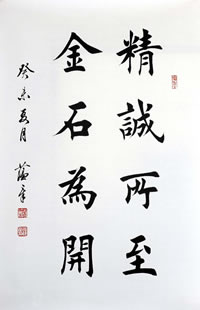 精誠所至
金石為開
癸未夏月